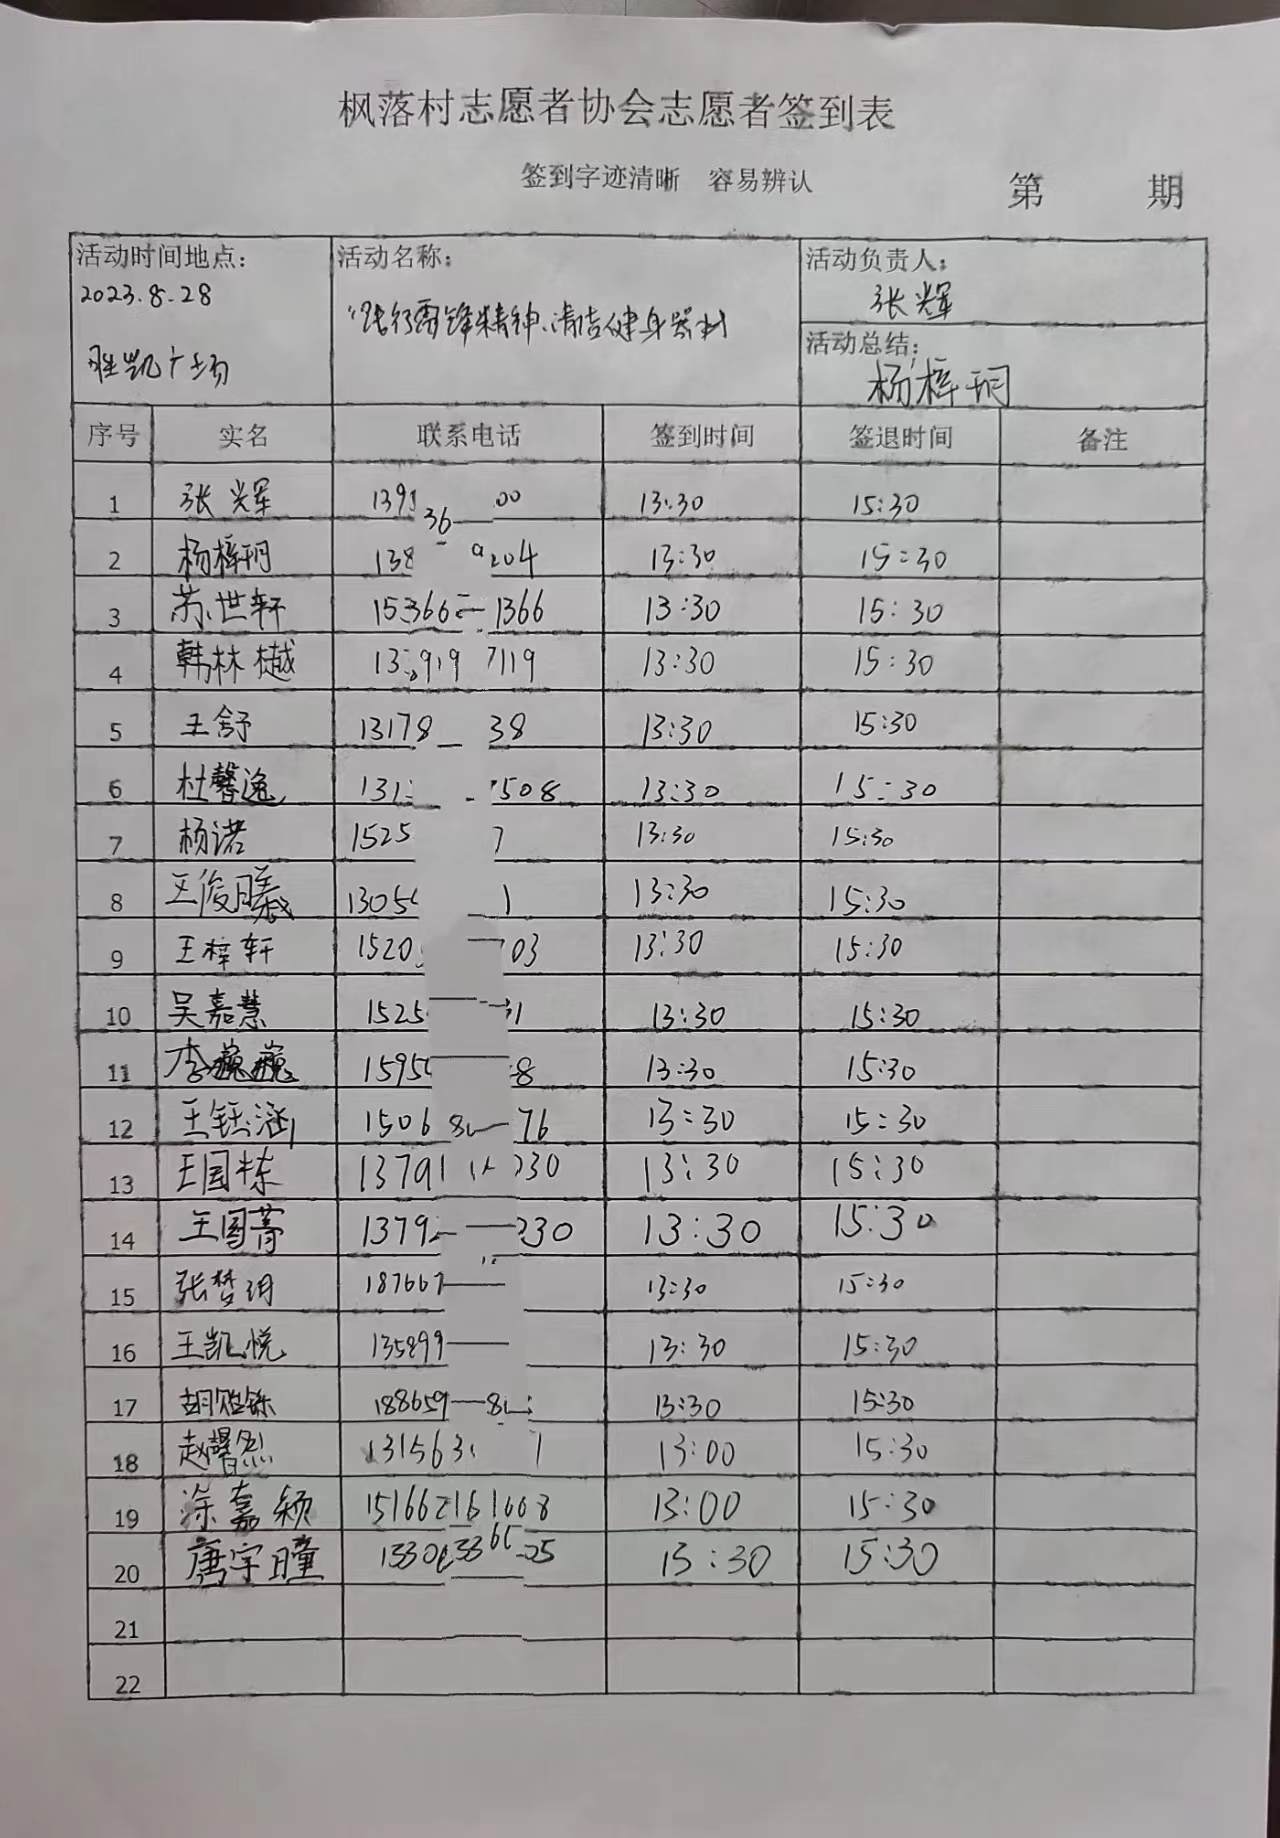 枫落村志愿者协会志愿者签到表
签到字迹清晰 容易辨认
第 期
活动时间地点：
2023.8.28
胜凯广场
活动名称：
“践行雷锋精神、清洁健身器材
活动负责人：
张辉
活动总结：
杨梓玥
序号 实名 联系电话 签到时间 签退时间 备注
1 张辉 139 00 13:30 15:30
2 杨梓玥 138 204 13:30 15:30
3 苏世轩 15366 1366 13:30 15:30
4 韩林樾 13 919 7119 13:30 15:30
5 王舒 13178 38 13:30 15:30
6 杜馨逸 131 508 13:30 15:30
7 杨诺 1525 7 13:30 15:30
8 王俊 1305 1 13:30 15:30
9 王梓轩 1520 03 13:30 15:30
10 吴嘉慧 1525 1 13:30 15:30
11 李巍巍 1595 8 13:30 15:30
12 王钰涵 1506 76 13:30 15:30
13 王国栋 13791 230 13:30 15:30
14 王国菁 1379 230 13:30 15:30
15 张梦玥 187667 13:30 15:30
16 王凯悦 135899 13:30 15:30
17 胡 铄 188659 13:30 15:30
18 赵馨 131563 1 13:00 15:30
19 涂嘉颖 151662161008 13:00 15:30
20 唐宇瞳 1330 05 13:30 15:30
21
22